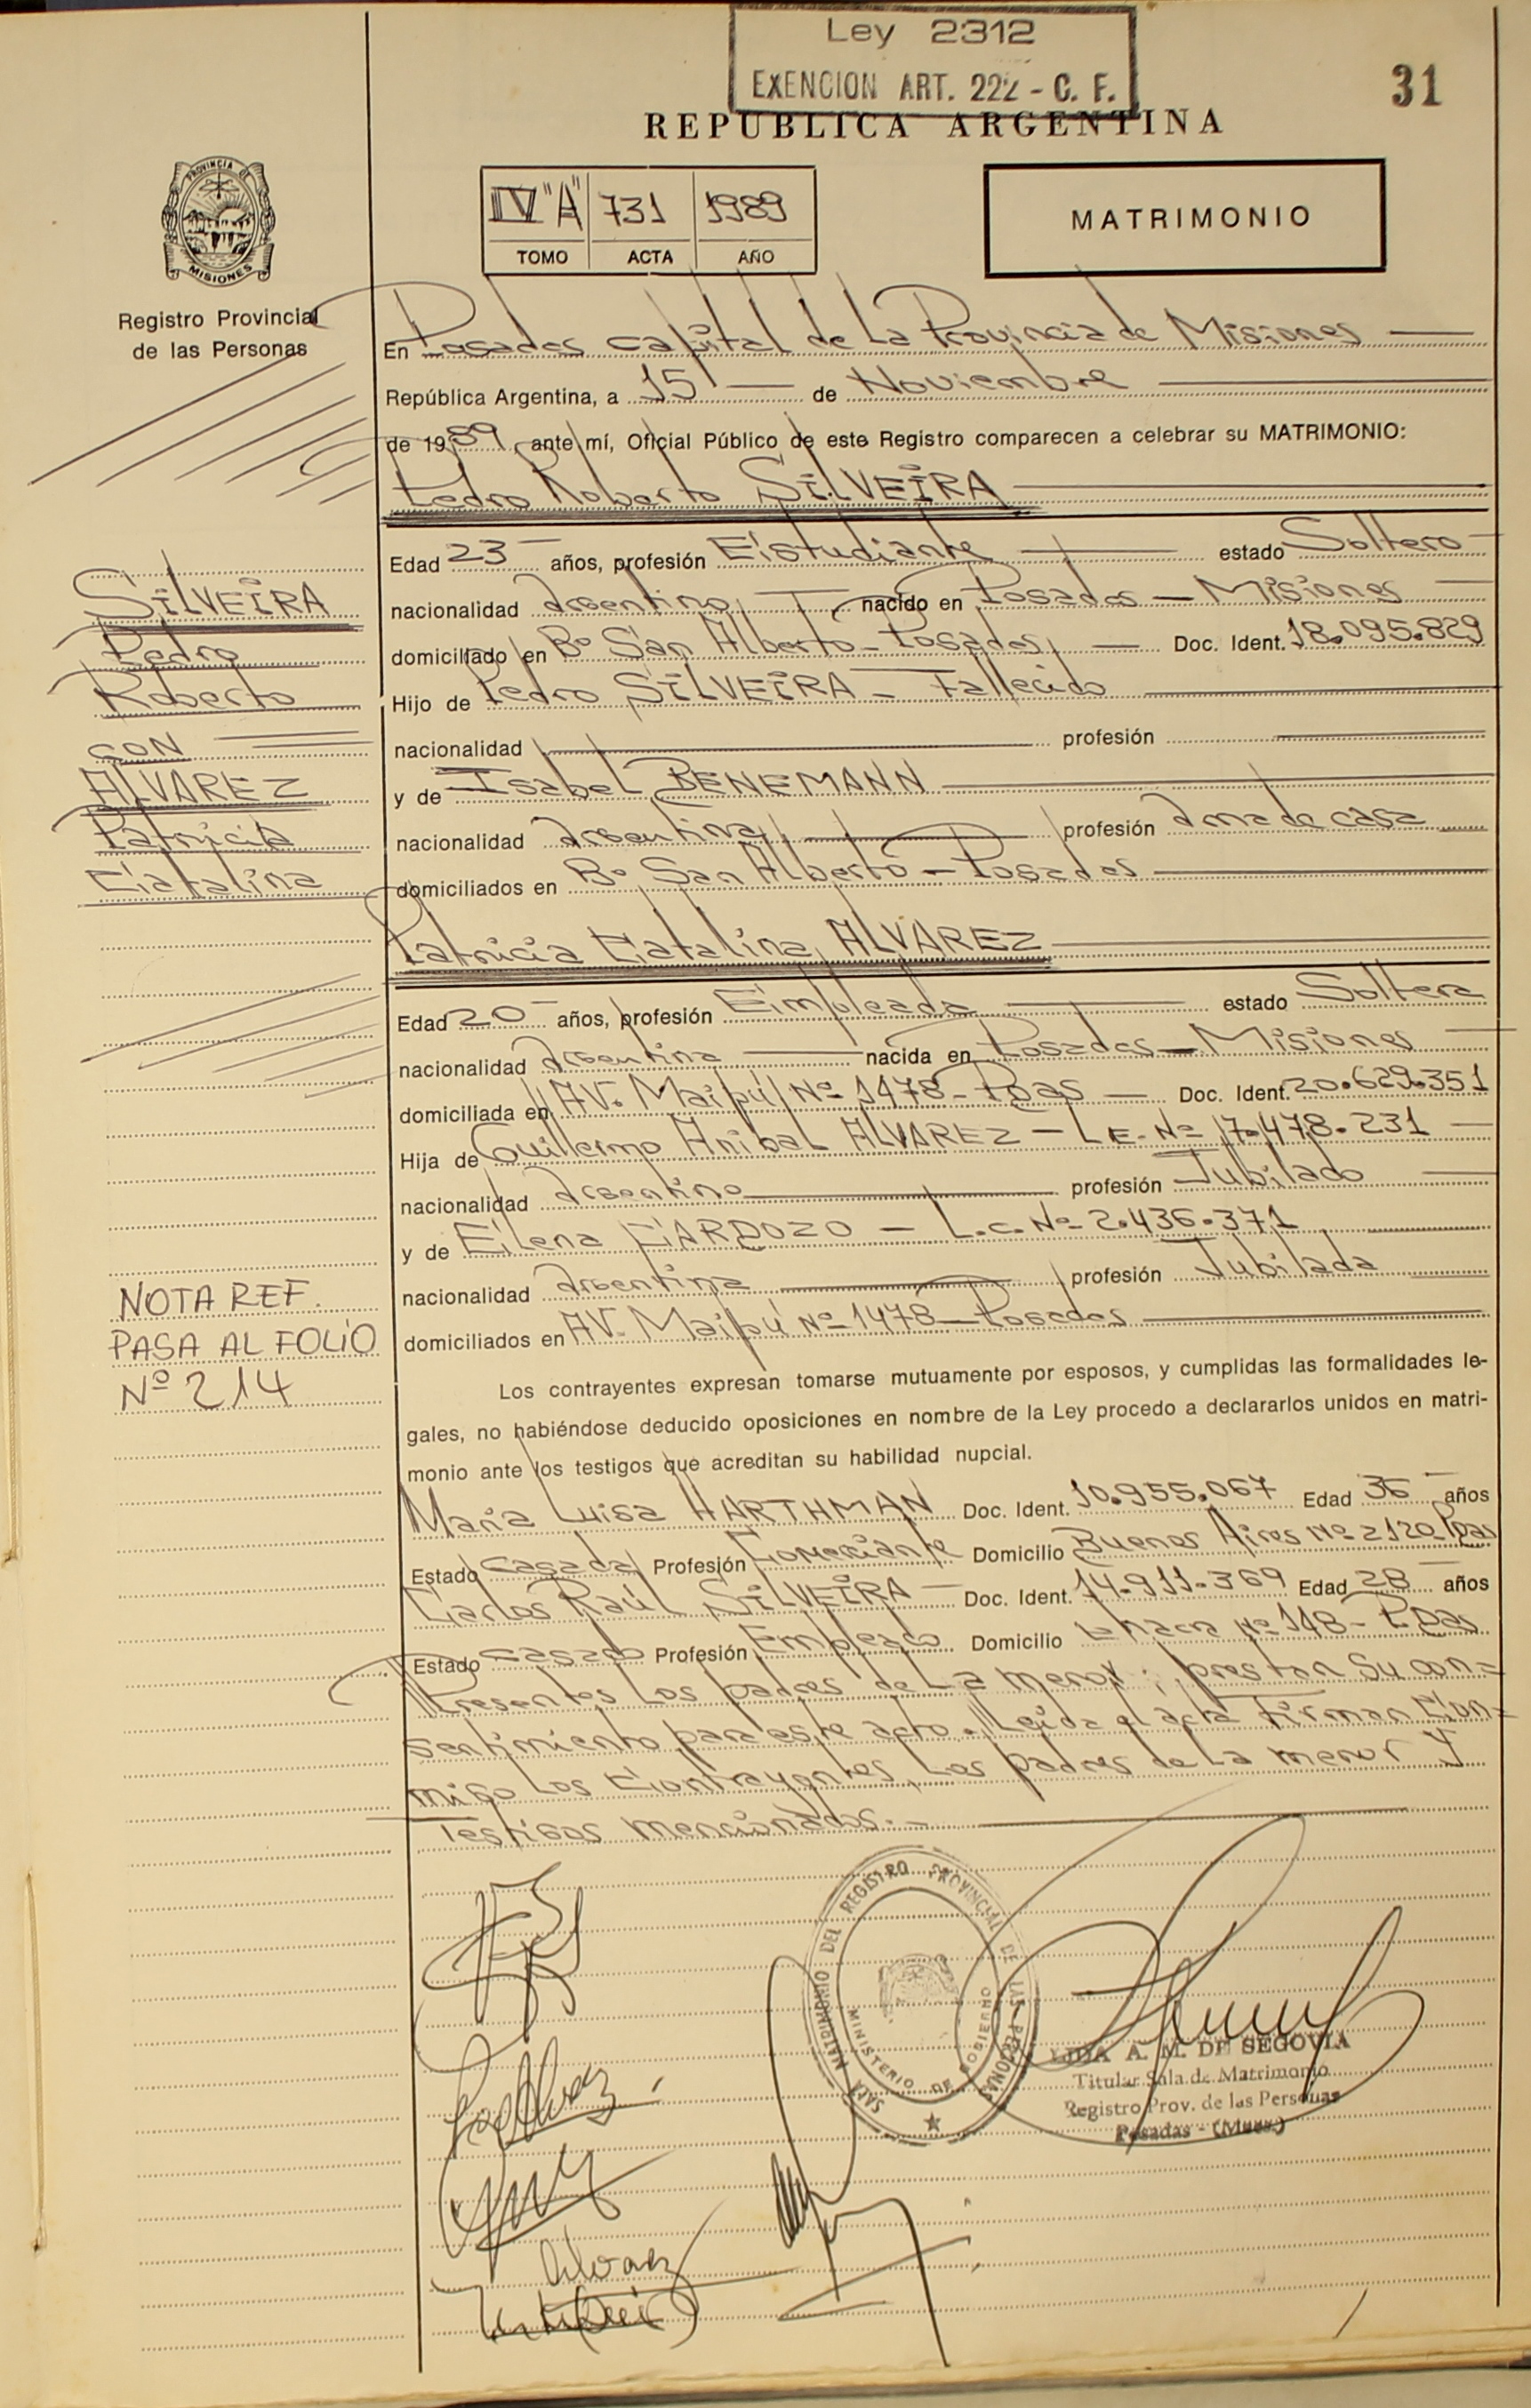 Ley 2312
EXENCION ART. 222 - C. F.
31
REPUBLICA ARGENTINA
PROVINCIA DE
MISIONES
IV "A" 731 1989
TOMO ACTA AÑO
MATRIMONIO
Registro Provincial
de las Personas
En Posadas capital de La Provincia de Misiones
República Argentina, a 15 de Noviembre
de 1989 ante mí, Oficial Público de este Registro comparecen a celebrar su MATRIMONIO:
Pedro Roberto SILVEIRA
Edad 23 años, profesión Estudiante estado Soltero
nacionalidad argentino nacido en Posadas - Misiones
domiciliado en Bº San Alberto - Posadas Doc. Ident. 18.095.829
Hijo de Pedro SILVEIRA - Fallecido
nacionalidad profesión
y de Isabel BENEMANN
nacionalidad argentina profesión ama de casa
domiciliados en Bº San Alberto - Posadas
SILVEIRA
Pedro
Roberto
CON
ALVAREZ
Patricia
Catalina
Patricia Catalina ALVAREZ
Edad 20 años, profesión Empleada estado Soltera
nacionalidad argentina nacida en Posadas - Misiones
domiciliada en AV. Maipú Nº 1478 - Pdas Doc. Ident. 20.629.351
Hija de Guillermo Anibal ALVAREZ - L.E. Nº 7.478.231
nacionalidad argentino profesión Jubilado
y de Elena CARDOZO - L.C. Nº 2.436.371
nacionalidad argentina profesión Jubilada
domiciliados en AV. Maipú Nº 1478 - Posadas
NOTA REF.
PASA AL FOLIO
Nº 214
Los contrayentes expresan tomarse mutuamente por esposos, y cumplidas las formalidades le-
gales, no habiéndose deducido oposiciones en nombre de la Ley procedo a declararlos unidos en matri-
monio ante los testigos que acreditan su habilidad nupcial.
Maria Luisa HARTHMAN Doc. Ident. 10.955.067 Edad 36 años
Estado casada Profesión Comerciante Domicilio Buenos Aires Nº 2120 Pdas
Carlos Raúl SILVEIRA - Doc. Ident. 14.911.369 Edad 28 años
Estado casado Profesión Empleado Domicilio Nº 148 - Pdas
Presentes Los padres de La menor; prestan su con-
sentimiento para este acto. Leida el acta Firman Con-
migo Los Contrayentes, Los padres de La menor y
Testigos mencionados.-
SALA MATRIMONIO DEL REGISTRO PROVINCIAL DE LAS PERSONAS
MINISTERIO DE GOBIERNO
A. M. DE SEGOVIA
Titular Sala de Matrimonio
Registro Prov. de las Personas
Posadas - (Mnes.)
Alvarez